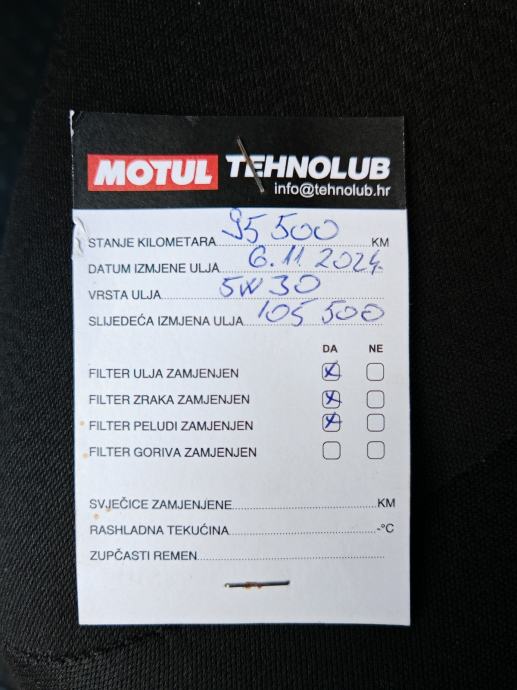 MOTUL TEHNOLUB
info@tehnolub.hr
STANJE KILOMETARA 95 500 KM
DATUM IZMJENE ULJA 6.11.2024.
VRSTA ULJA 5W30
SLIJEDEĆA IZMJENA ULJA 105 500
DA NE
FILTER ULJA ZAMJENJEN x
FILTER ZRAKA ZAMJENJEN x
FILTER PELUDI ZAMJENJEN x
FILTER GORIVA ZAMJENJEN
SVJEČICE ZAMJENJENE KM
RASHLADNA TEKUĆINA -°C
ZUPČASTI REMEN